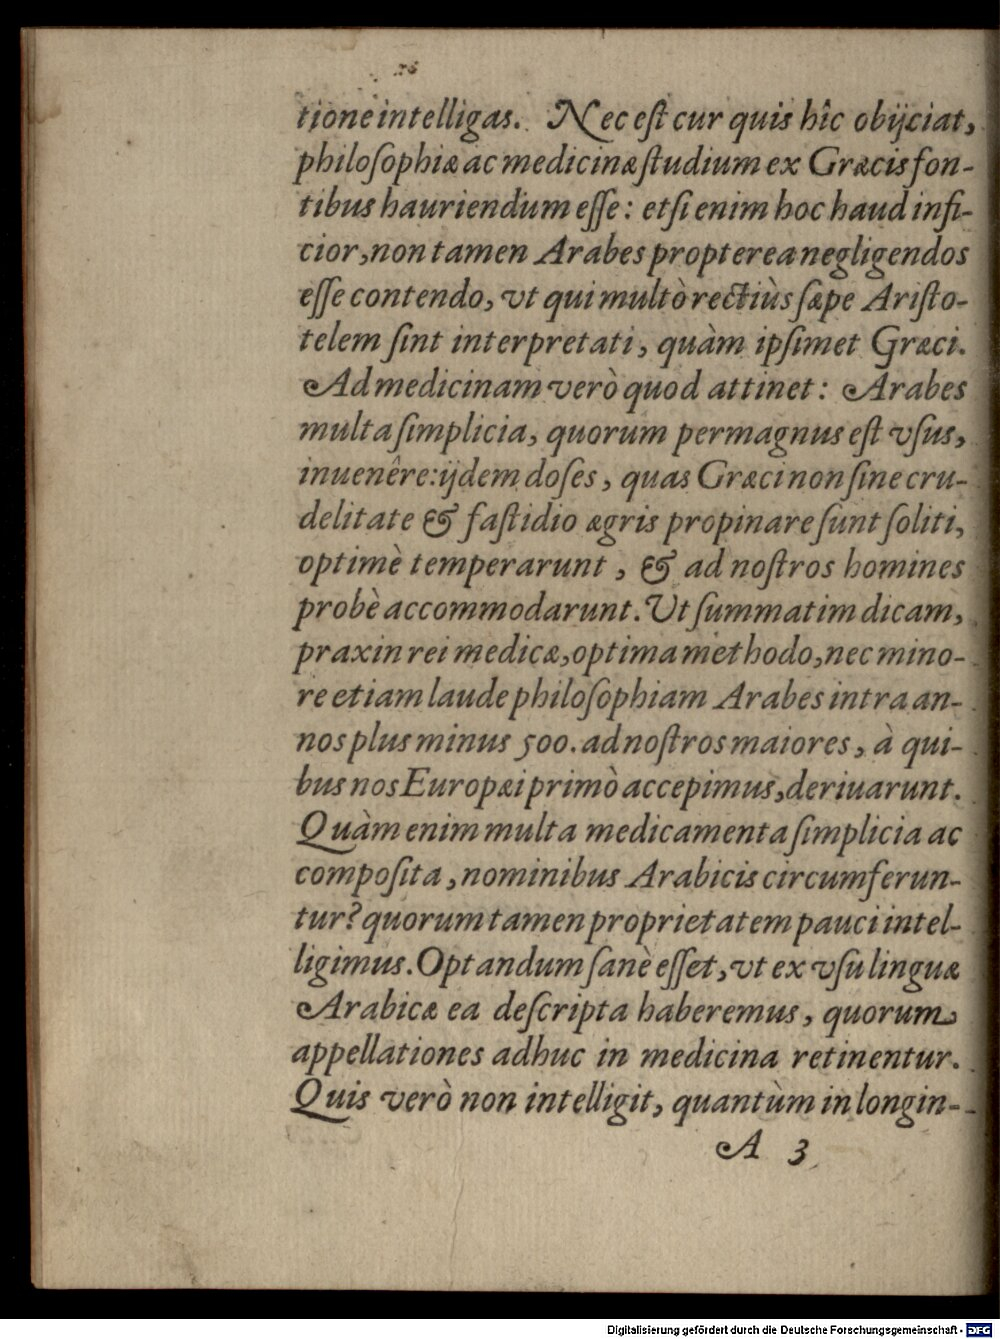 tione intelligas. Nec eſt cur quis hîc obijciat,
philoſophiæ ac medicinæ ſtudium ex Græcis fon-
tibus hauriendum eſſe: etſi enim hoc haud infi-
cior, non tamen Arabes propterea negligendos
eſſe contendo, vt qui multò rectiùs ſæpe Ariſto-
telem ſint interpretati, quàm ipſimet Græci.
Ad medicinam verò quod attinet: Arabes
multa ſimplicia, quorum permagnus eſt vſus,
inuenêre: ijdem doſes, quas Græci non ſine cru-
delitate & faſtidio ægris propinare ſunt ſoliti,
optimè temperarunt, & ad noſtros homines
probè accommodarunt. Ut ſummatim dicam,
praxin rei medicæ, optima methodo, nec mino-
re etiam laude philoſophiam Arabes intra an-
nos plus minus 500. ad noſtros maiores, à qui-
bus nos Europæi primò accepimus, deriuarunt.
Quàm enim multa medicamenta ſimplicia ac
compoſita, nominibus Arabicis circumferun-
tur? quorum tamen proprietatem pauci intel-
ligimus. Optandum ſanè eſſet, vt ex vſu linguæ
Arabicæ ea deſcripta haberemus, quorum
appellationes adhuc in medicina retinentur.
Quis verò non intelligit, quantùm in longin-
A 3
Digitalisierung gefördert durch die Deutsche Forschungsgemeinschaft - DFG